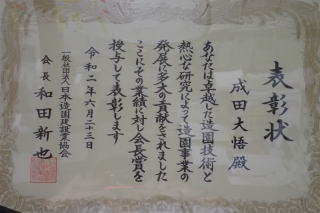 表彰状
成田大悟殿
あなたは卓越した造園技術と
熱心な研究によって造園事業の
発展に多大の貢献をされました
ここにその業績に対し会長賞を
授与して表彰します
令和二年六月二十三日
一般社団法人日本造園建設業協会
会長 和田新也